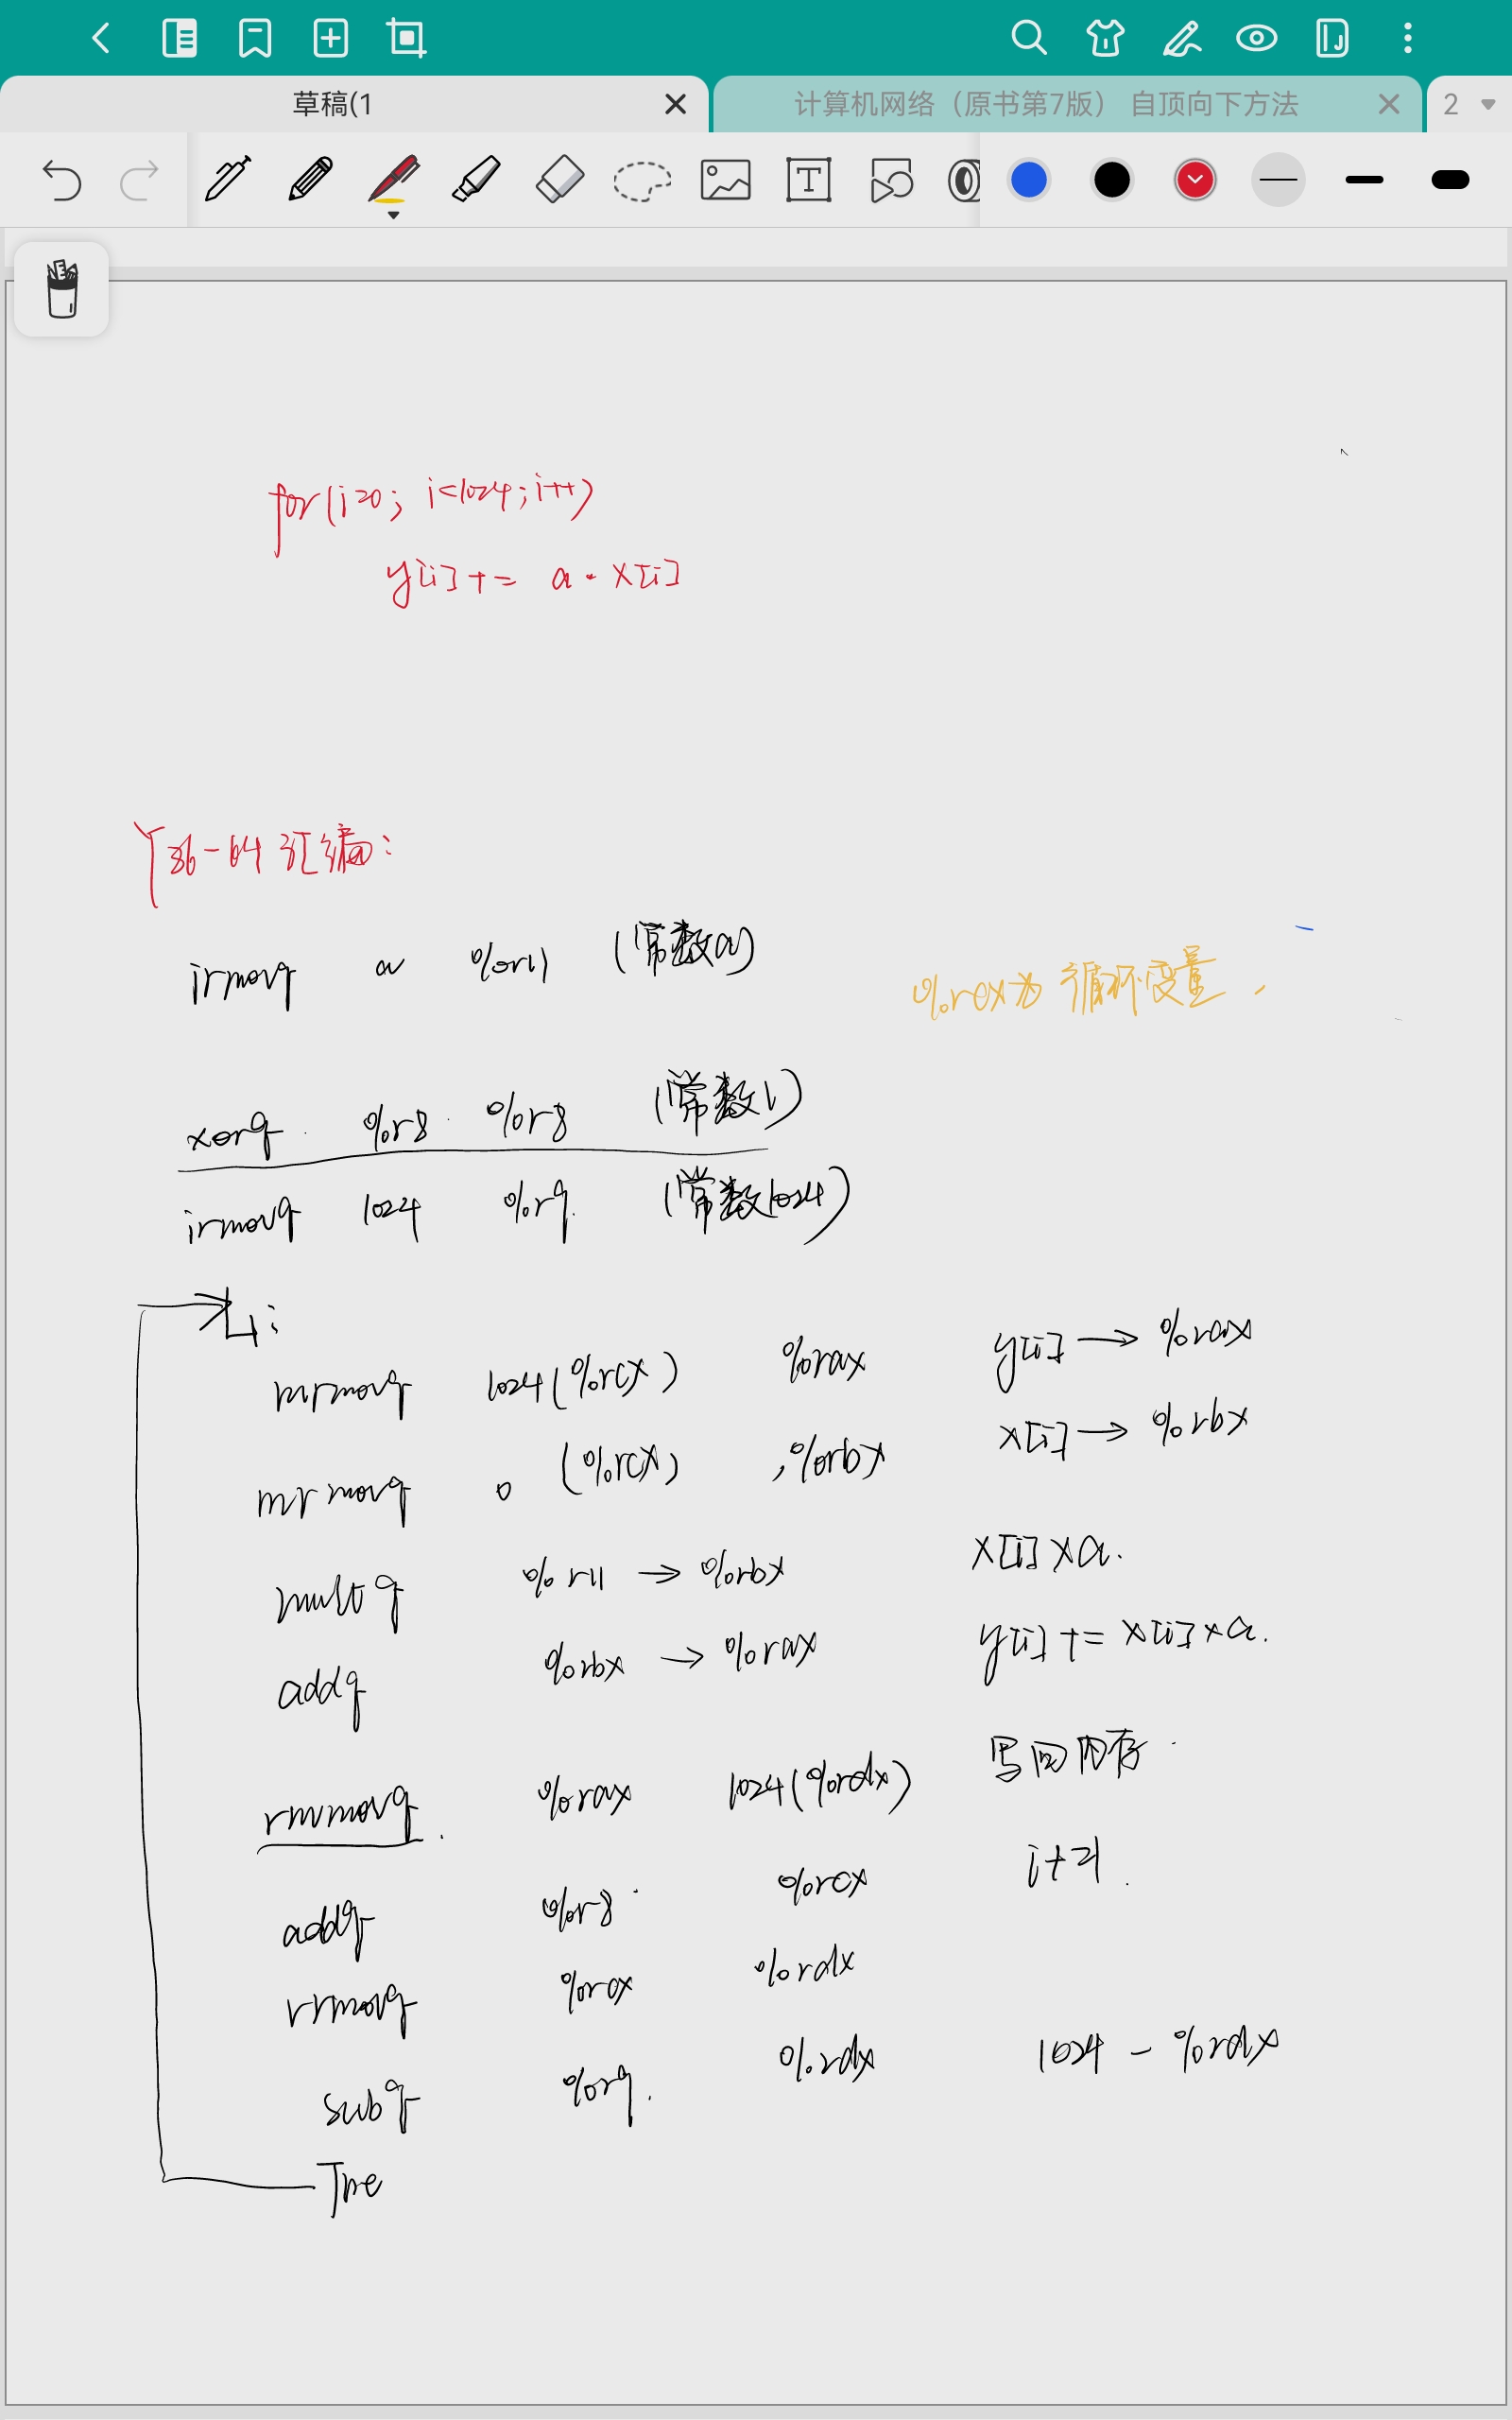 草稿(1
计算机网络（原书第7版） 自顶向下方法
2
for(i=0; i<1024; i++)
y[i] += a · x[i]
Y86-64 汇编:
irmovq a %r11 (常数a)
%rcx为 循环变量,
xorq %r8 %r8 (常数1)
irmovq 1024 %r9 (常数1024)
L1:
mrmovq 1024(%rcx) %rax y[i] → %rax
mrmovq 0 (%rcx) ,%rbx x[i] → %rbx
multq %r11 → %rbx x[i]×a.
addq %rbx → %rax y[i] += x[i]×a.
rmmovq. %rax 1024(%rdx) 写回内存
addq %r8 %rcx
rrmovq %rcx %rdx
subq %r9. %rdx 1024 - %rdx
Jne